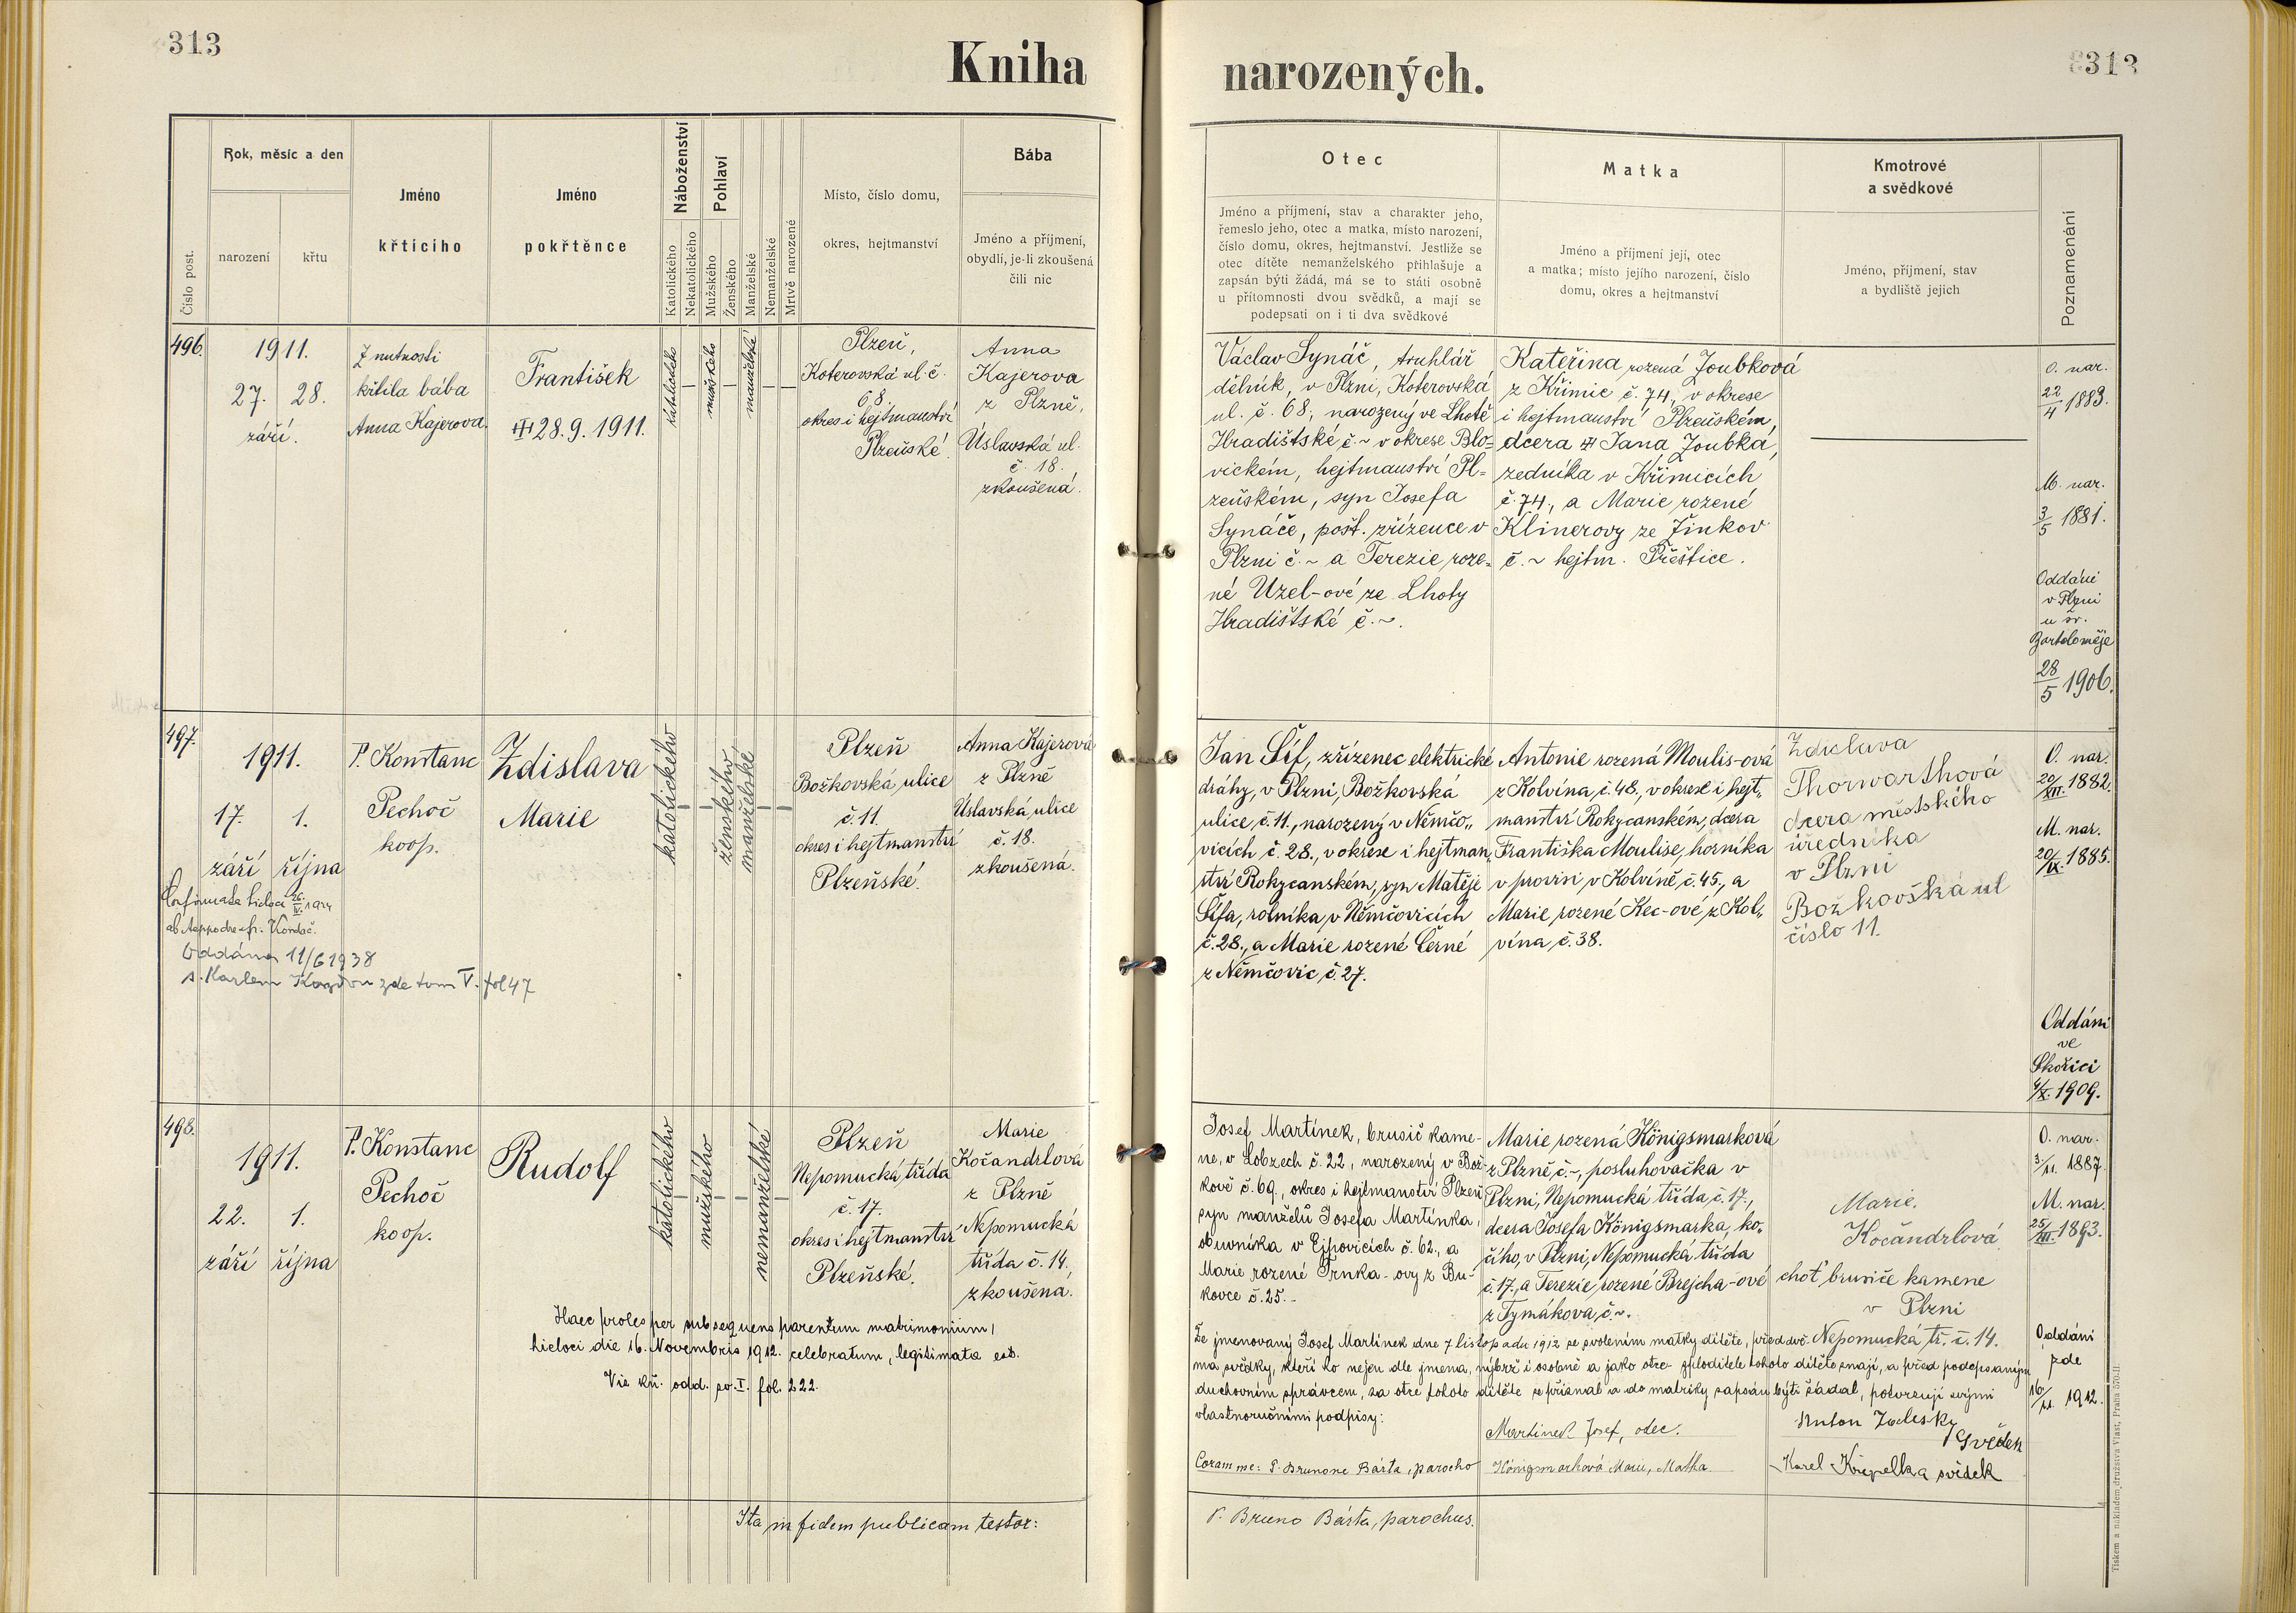 313
Kniha
narozených.
313
Číslo post.
Rok, měsíc a den
narození
křtu
Jméno
křtícího
Jméno
pokřtěnce
Náboženství
Katolického
Nekatolického
Pohlaví
Mužského
Ženského
Manželské
Nemanželské
Mrtvě narozené
Místo, číslo domu,
okres, hejtmanství
Bába
Jméno a příjmení,
obydlí, je-li zkoušená
čili nic
Otec
Jméno a příjmení, stav a charakter jeho,
řemeslo jeho, otec a matka, místo narození,
číslo domu, okres, hejtmanství. Jestliže se
otec dítěte nemanželského přihlašuje a
zapsán býti žádá, má se to státi osobně
u přítomnosti dvou svědků, a mají se
podepsati on i ti dva svědkové
Matka
Jméno a příjmení její, otec
a matka; místo jejího narození, číslo
domu, okres a hejtmanství
Kmotrové
a svědkové
Jméno, příjmení, stav
a bydliště jejich
Poznamenání
496.
1911.
27. 28.
září.
Z nutnosti
křtila bába
Anna Kajerova.
František
28.9.1911.
katolického
mužského
manželské
Plzeň,
Koterovská ul. č.
68.
okres i hejtmanství
Plzeňské.
Anna
Kajerova
z Plzně,
Úslavská ul.
č. 18.
zkoušená.
Václav Synáč, truhlář
dělník, v Plzni, Koterovská
ul. č. 68, narozený ve Lhotě
Hradištské č. ~ v okrese Blo=
vickém, hejtmanství Pl=
zeňském, syn Josefa
Synáče, pošt. zřízence v
Plzni č. ~ a Terezie roze=
né Uzel-ové ze Lhoty
Hradištské č. ~.
Kateřina rozená Zoubková
z Křimic č. 74, v okrese
i hejtmanství Plzeňském,
dcera Jana Zoubka,
zedníka v Křimicích
č. 74, a Marie rozené
Klinerovy ze Žinkov
č. ~ hejtm. Přeštice.
O. nar.
22/4 1883.
M. nar.
3/5 1881.
Oddáni
v Plzni
u sv.
Bartoloměje
28/5 1906.
497.
1911.
17. 1.
září října
P. Konstanc
Pechoč
koop.
Zdislava
Marie
katolického
ženského
manželské
Plzeň
Božkovská ulice
č. 11.
okres i hejtmanství
Plzeňské.
Anna Kajerová
z Plzně
Úslavská ulice
č. 18.
zkoušená.
Oddána 11/6 1938
s. Karlem zde tom V. fol 47
Jan Šíf, zřízenec elektrické
dráhy, v Plzni, Božkovská
ulice č. 11., narozený v Němčo„
vicích č. 28., v okrese i hejtman„
ství Rokycanském, syn Matěje
Šífa, rolníka v Němčovicích
č. 28., a Marie rozené Černé
z Němčovic č. 27.
Antonie rozená Moulis-ová
z Kolvína, č. 48., v okrese i hejt„
manství Rokycanském, dcera
Františka Moulise, horníka
v provisi v Kolvíně, č. 45., a
Marie rozené Kec-ové z Kol„
vína, č. 38.
Zdislava
Thorwarthová
dcera městského
úředníka
v Plzni
Božkovská ul
číslo 11.
O. nar.
20/XII. 1882.
M. nar.
20/IX. 1885.
Oddáni
ve
Skořici
4/X. 1909.
498.
1911.
22. 1.
září října
P. Konstanc
Pechoč
koop.
Rudolf
katolického
mužského
nemanželské
Plzeň
Nepomucká třída
č. 17.
okres i hejtmanství
Plzeňské.
Marie
Kočandrlová
z Plzně
Nepomucká
třída č. 14.
zkoušená.
Haec proles per subsequens parentum matrimonium,
hicloci die 16. Novembris 1912. celebratum, legitimata est.
Viz kn. odd. sv. I. fol. 222.
Josef Martínek, brusič kame-
ne, v Lobzech č. 22, narozený v Bož-
kově č. 69., okres i hejtmanství Plzeň,
syn manželů Josefa Martínka,
obuvníka v Ejpovicích č. 62., a
Marie rozené Trnka-ovy z Bu-
kovce č. 25.-
Marie rozená Königsmarková
z Plzně č. ~, posluhovačka v
Plzni, Nepomucká třída, č. 17.,
dcera Josefa Königsmarka, ko„
čího, v Plzni, Nepomucká třída
č. 17., a Terezie rozené Brejcha-ové
z Tymákova, č. ~.
Marie.
Kočandrlová
choť brusiče kamene
v Plzni
Nepomucká tř. č. 14.
O. nar.
3./11. 1887.
M. nar.
25/III. 1893.
Oddáni
zde
16/11. 1912.
Že jmenovaný Josef Martínek dne 7 listopadu 1912 se svolením matky dítěte, před dvě-
ma svědky, kteří ho nejen dle jména, nýbrž i osobně a jako otce- zploditele tohoto dítěte znají, a před podepsaným
duchovním správcem, za otce tohoto dítěte se přiznal a do matriky zapsán býti žádal, potvrzují svými
vlastnoručními podpisy:
Martínek Josef, otec.
Anton Zaleský
Svědek
Coram me: P. Brunone Bárta, parocho
Königsmarková Marie, Matka.
Karel Křepelka svědek
Ita in fidem publicam testor:
P. Bruno Bárta, parochus.
Tiskem a nákladem družstva Vlast, Praha 570.II.